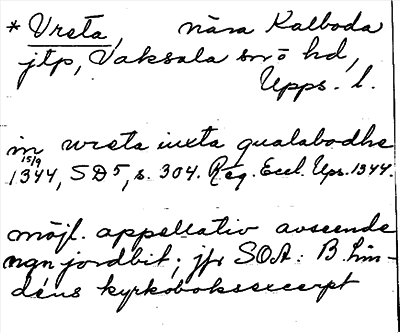 * Vrsta, nära Kalboda
jtp, Vaksala sn o hd,
Upps. l.
in wrsta iuxta qualabodhe
15/9
1344, SD5, s. 304. Reg. Eccl. Ups. 1344.
möjl. appellativ avseende
ngn jordbit; jfr SOA: B. Lin-
déns kyrkoboksexcerpt